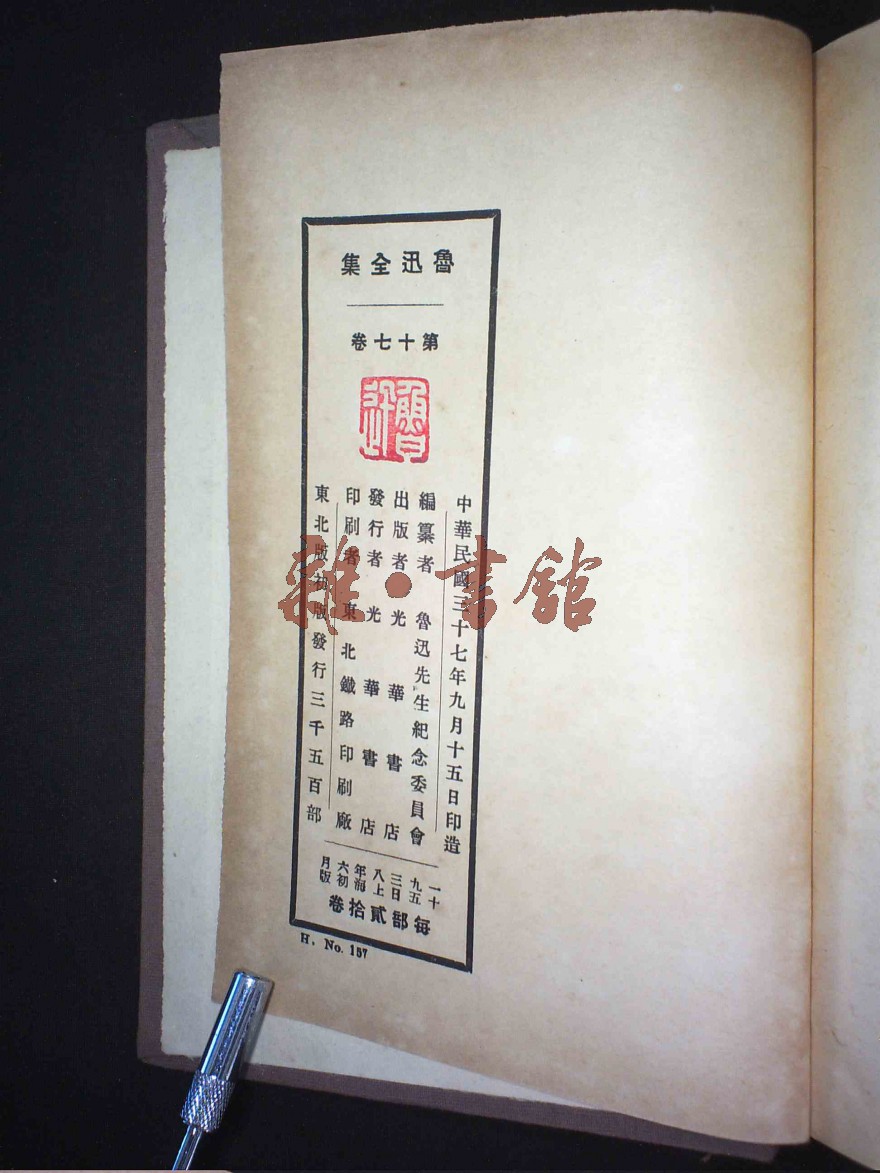 魯迅全集
第十七卷
魯迅
中華民國三十七年九月十五日印造
編纂者 魯迅先生紀念委員會
出版者 光華書店
發行者 光華書店
印刷者 東北鐵路印刷廠
東北版初版發行三千五百部
一九三八年六月
十五日上海初版
每部貳拾卷
H. No. 157
雜·書館